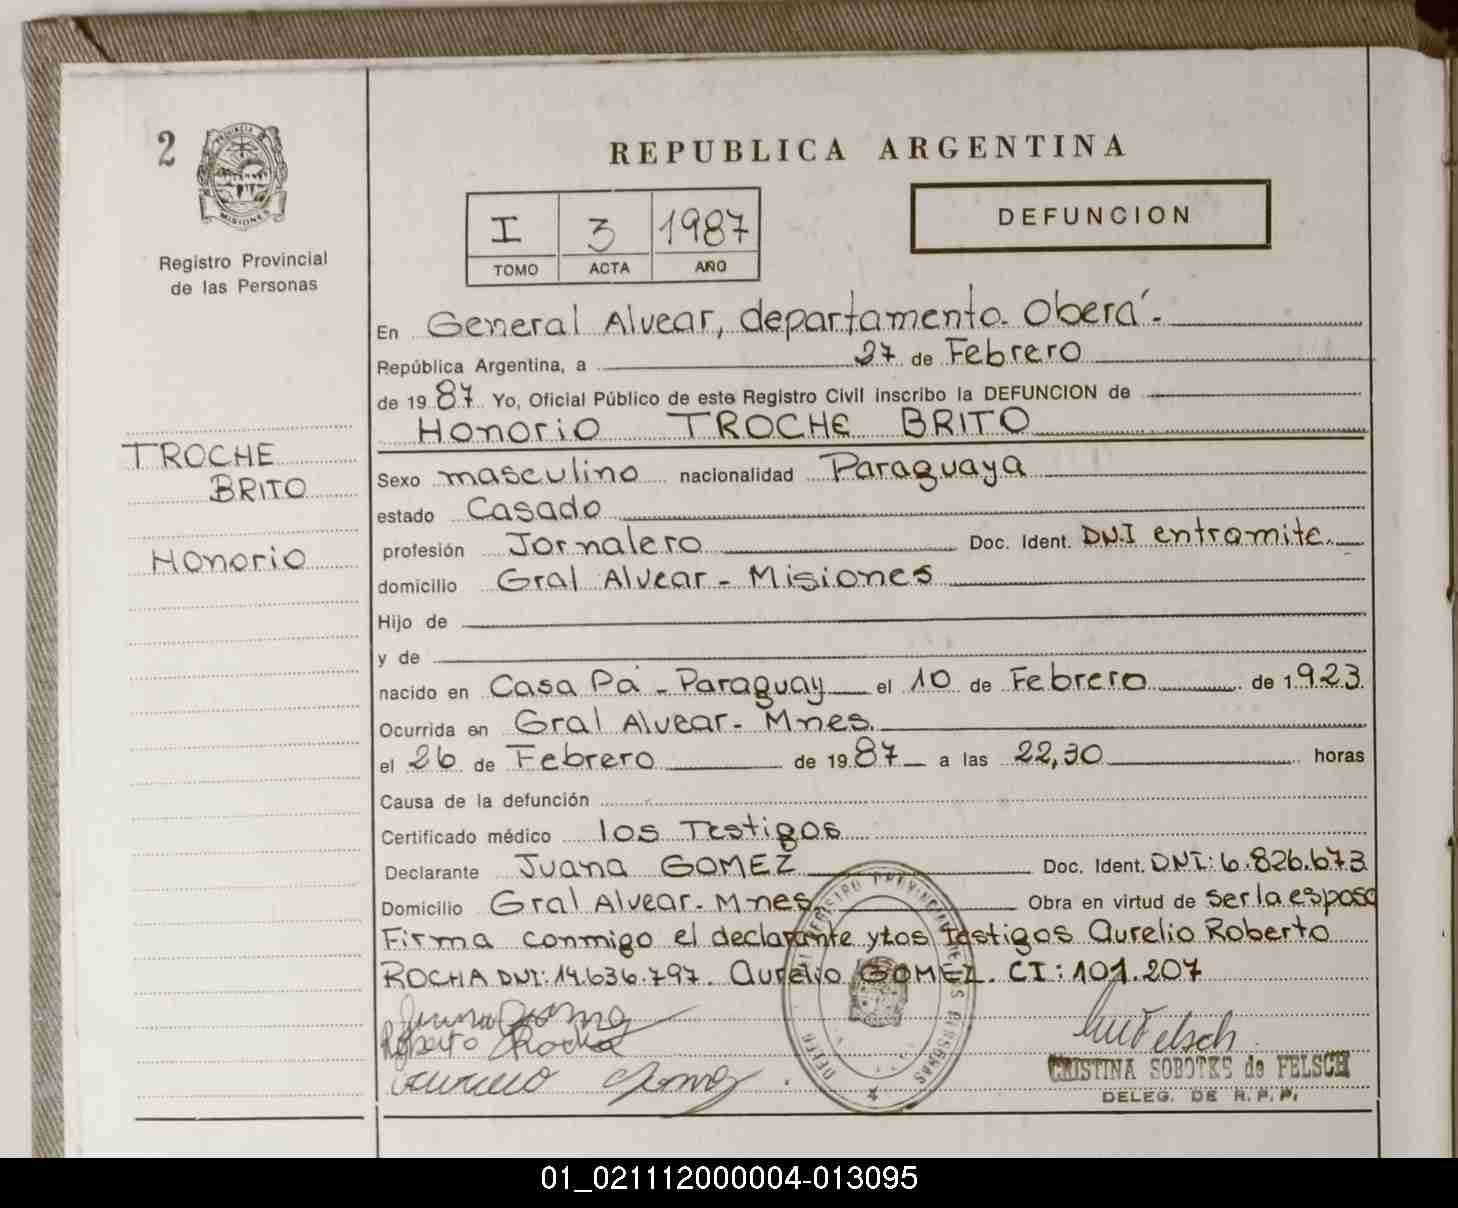 2
PROVINCIA DE
MISIONES
Registro Provincial
de las Personas
TROCHE
BRITO
Honorio
REPUBLICA ARGENTINA
I 3 1987
TOMO ACTA AÑO
DEFUNCION
En General Alvear, departamento. Oberá.
República Argentina, a 27 de Febrero
de 1987 Yo, Oficial Público de este Registro Civil inscribo la DEFUNCION de
Honorio TROCHE BRITO
Sexo masculino nacionalidad Paraguaya
estado Casado
profesión Jornalero Doc. Ident. DN.I entramite.
domicilio Gral Alvear - Misiones
Hijo de
y de
nacido en Casa Pá - Paraguay el 10 de Febrero de 1.923
Ocurrida en Gral Alvear - Mnes.
el 26 de Febrero de 1987 a las 22,30 horas
Causa de la defunción
Certificado médico los Testigos
Declarante Juana GOMEZ Doc. Ident. DNI: 6.826.673
Domicilio Gral Alvear - Mnes, Obra en virtud de ser la esposa
Firma conmigo el declarante y los testigos Aurelio Roberto
ROCHA DNI: 14.636.797. Aurelio GOMEZ. CI: 101.207
Roberto Rocha
CRISTINA SOBOTKS de FELSCH
DELEG. DE R. P. P.
REGISTRO PROVINCIAL DE LAS PERSONAS
01_021112000004-013095